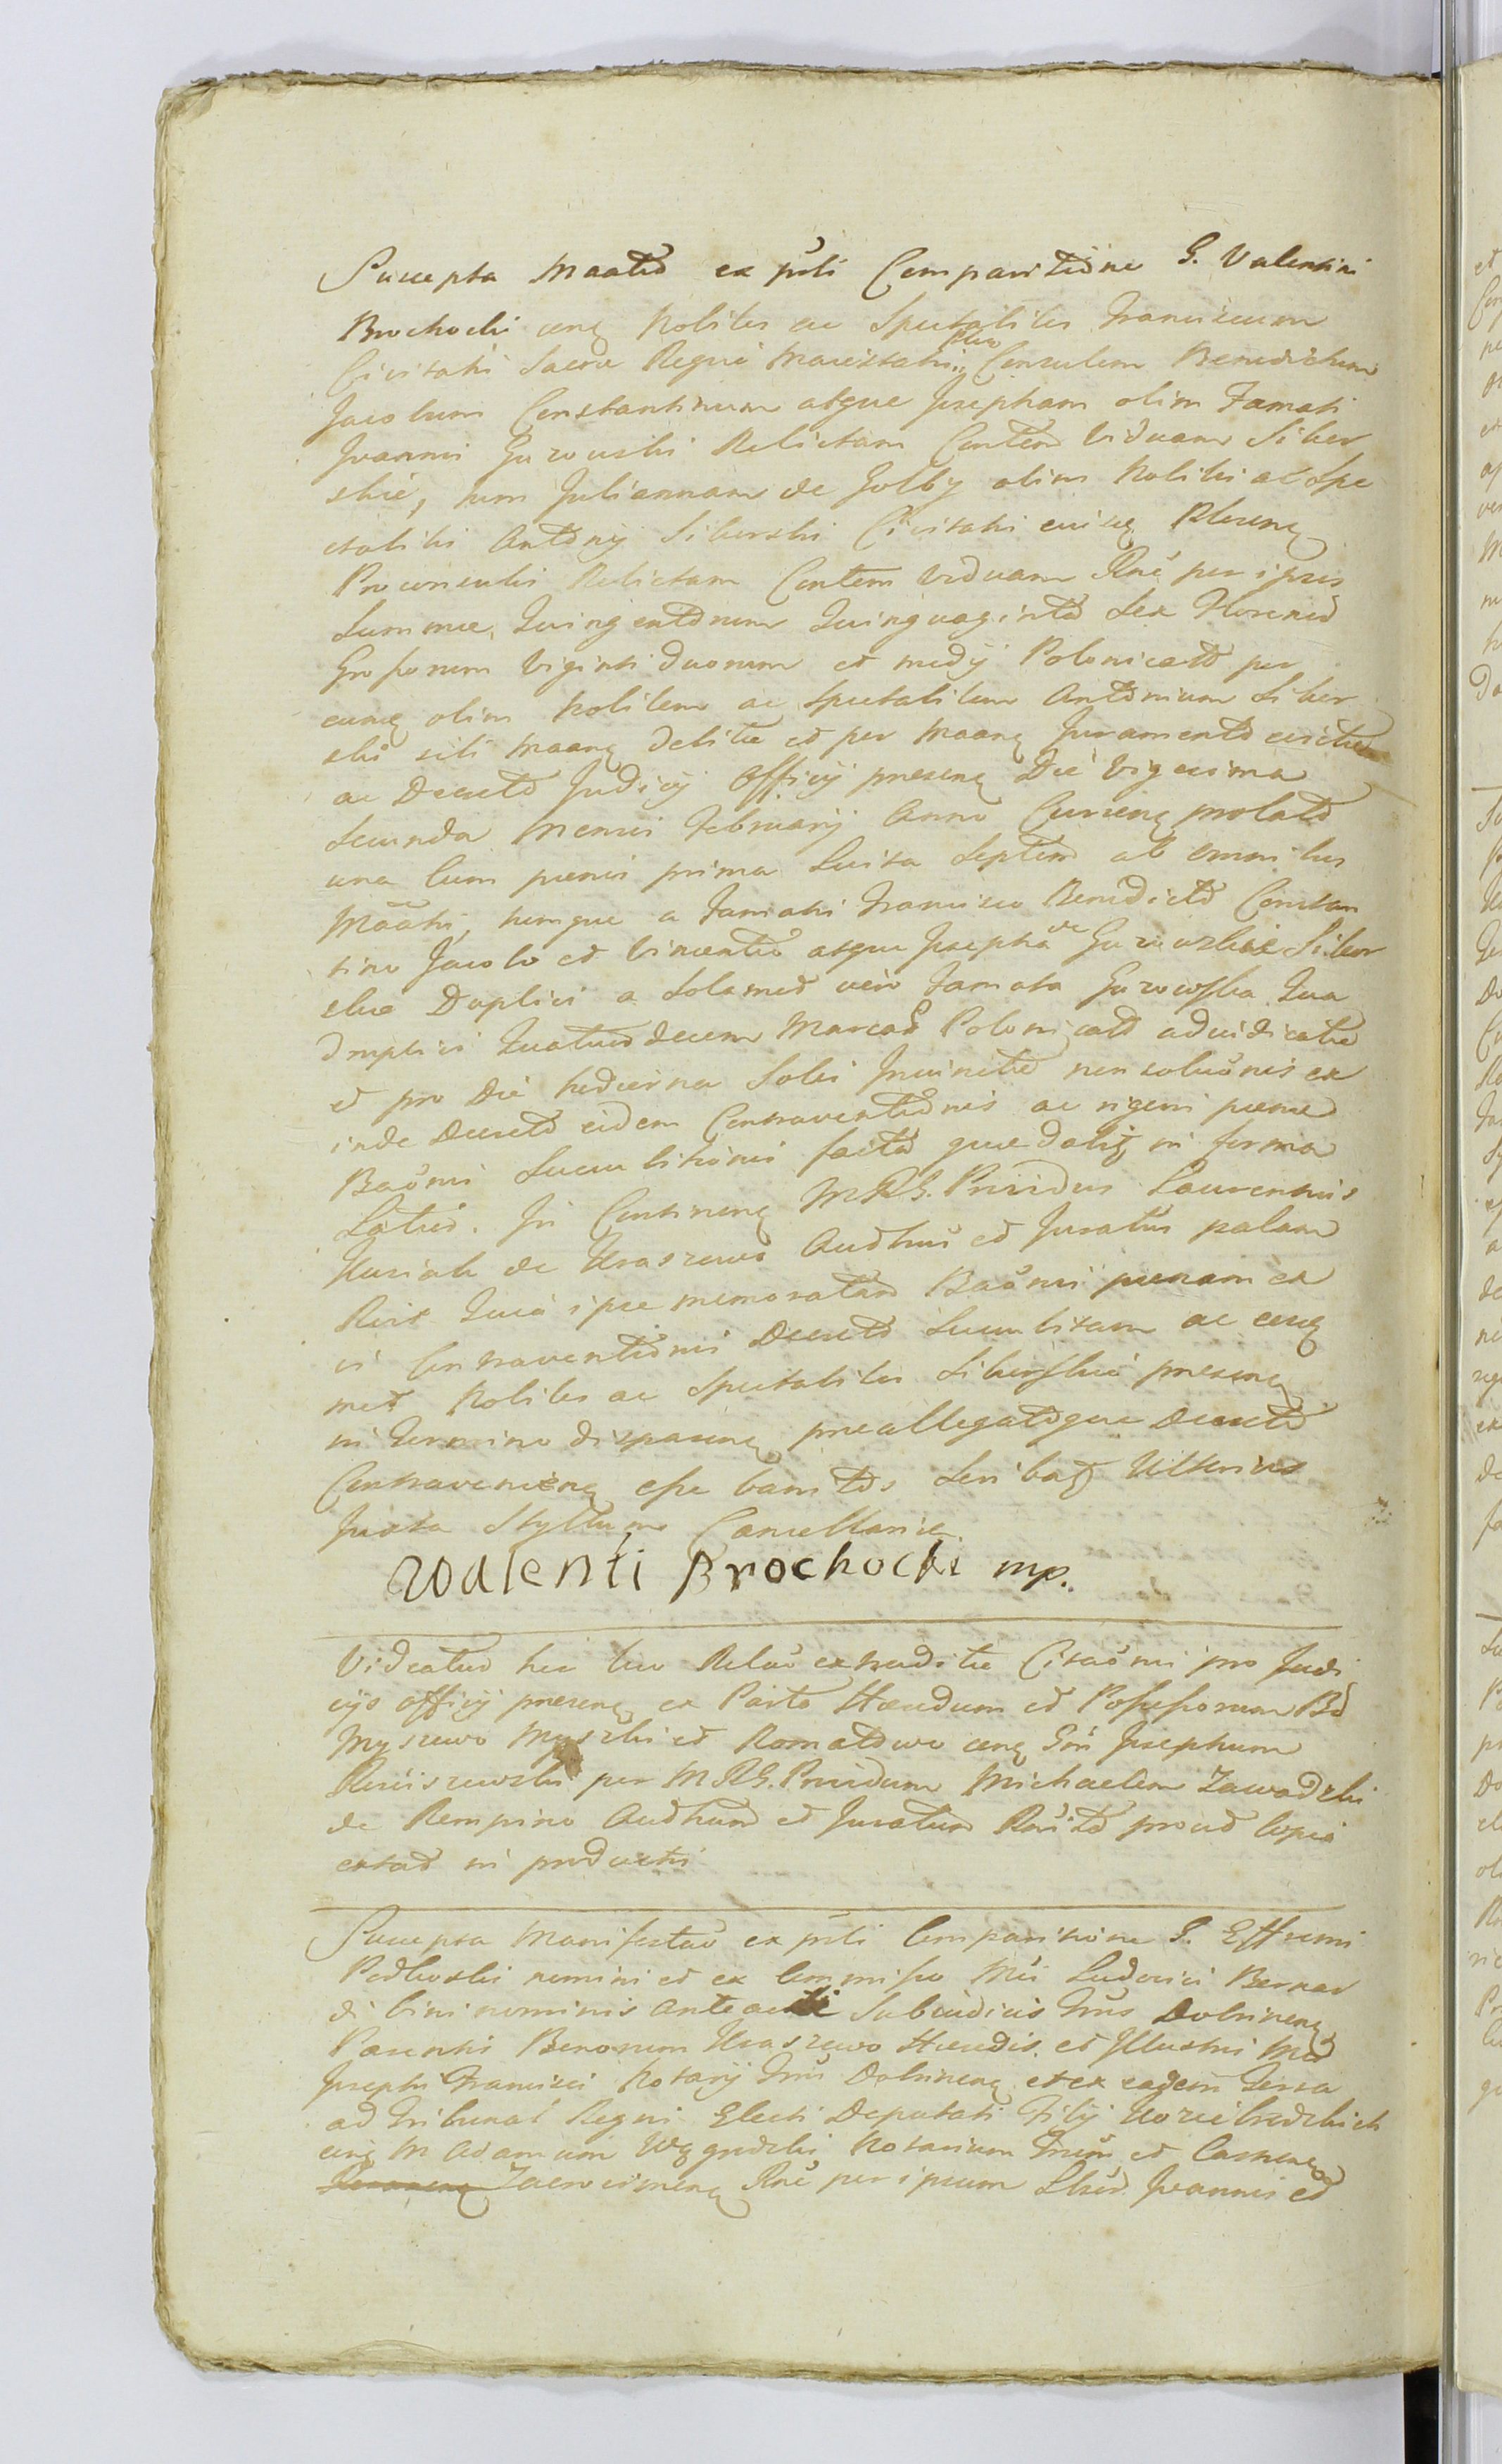 Suscepta Maatio ex psti Comparitione G. Valentini
Brochocki conq Nobiles ac Spectabiles Franciscum
Civitatis Sacra Regia Maiestatis Consulem Benedictum
Jacobum Constantinum atque Josepham olim Famati
Joannis Gurowski Relictam Contem Viduam Siker
skie, tum Juliannam de Golby olim Nobilis ac Spe
ctabilis Antonij Sikorski Civitatis eiusq Plocenq
Proconsulis Relictam Contem Viduam Rne per ipsos
Summae Quingentorum Quinquaginta Sex Florenor
Grossorum Viginti duorum et medij Polonicat per
eumq olim Nobilem ac Spectabilem Antonium Siker
ski sibi Maanq debitae et per Maanq Juramento evictae
ac Decreto Judicij Officij presenq Die Vigesima
Secunda Mensis February Anno Currenq prolato
una cum poenis prima Luita Septem ab omnibus
Maati, tumque a Famatis Francisco Benedicto Constan
tino Jacobo et Vincentio atque Josepha de Gurowskie Siker
skie Duplici a Solamet vero Famata Gurowska Qua
druplici Quatuordecem Marcar Polonicat adiudicatae
et pro Die hodierna Solvi Iniunctae non solutionis ex
inde Decreto eidem Contraventionis ac rigeni poenae
Baonis Succubitionis facta quae dabitq in forma
Latius. In Continenq MRG. Prvidus Laurentius
Kuziak de Kraszewo Authus et Juratus palam
Rcit Quia ipse memoratam Baonis poenam ex
vi Contraventionis Decreto Succubitam ac eosq
met Nobiles ac Spectabiles Sikerskie presenq
in Termino disparenq preallegatoque Decreto
Contravenienq esse bannitos Scribatq Ulterius
Juxta Styllum Cancellariae.
Walenti Brochocki mp.
Videatur hic loco Relao extraditae Citaonis pro Judi
cijs officij presenq ex Parte Haeredum et Possessorum Bo
Myszewo Myszki et Romatowo conq Gn Josephum
Kleniszewski per MRG. Providum Michaelem Zawadzki
de Rempino Authum et Juratum Rnito prout copia
extat in productis
Suscepta Manifestao ex psti Comparitione G. Effremi
Podkoski nomini et ex Commisso Mci Ludovici Bernar
di bini nominis anteacti Subiudicis Trris Dobrinenq
Parentis Bonorum Kraszewo Haeredis et Illustri Mcor
Josephi Francisci Notarij Trris Dobrinenq et ex eadem Terra
ad Tribunal Regni Electi Deputati Filij Kozie brodzkich
conq M Adamum Wągrodzki Notarium Trrm et Castrenq
Zacrocimenq Rne per ipsum Lhue. Joannis et